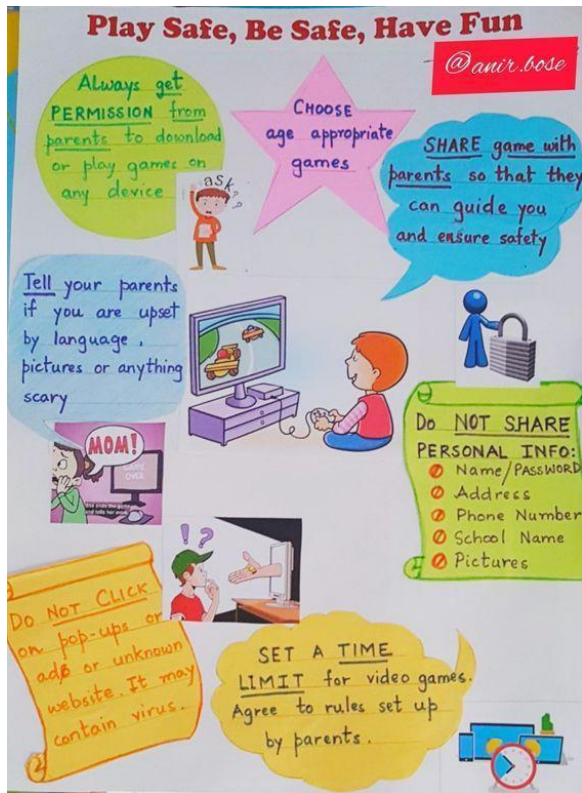 Play Safe, Be Safe, Have Fun
@anir.bose
Always get
PERMISSION from
parents to download
or play games on
any device
CHOOSE
age appropriate
games
SHARE game with
parents so that they
can guide you
and ensure safety
ask??
Tell your parents
if you are upset
by language,
pictures or anything
scary
MOM!
GAME
OVER
She ends the game
and tells her mom.
Do NOT SHARE
PERSONAL INFO:
Name/PASSWORD
Address
Phone Number
School Name
Pictures
!?
Do NOT CLICK
on pop-ups or
ads or unknown
website. It may
contain virus.
SET A TIME
LIMIT for video games.
Agree to rules set up
by parents.